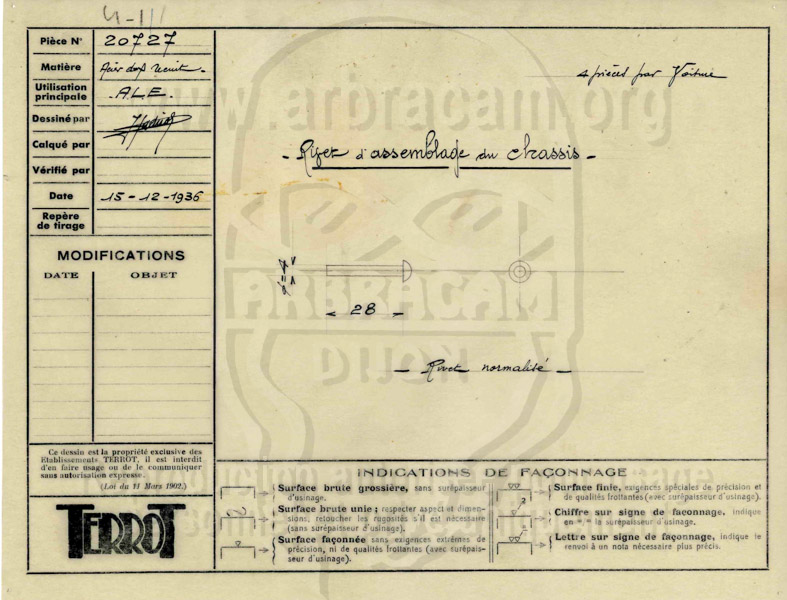 4-111
Pièce N° 20727
Matière Acier doux recuit.
Utilisation principale .A.L.E.
Dessiné par
Calqué par
Vérifié par
Date 15-12-1936
Repère de tirage
MODIFICATIONS
DATE OBJET
Ce dessin est la propriété exclusive des
Etablissements TERROT, il est interdit
d'en faire usage ou de le communiquer
sans autorisation expresse.
(Loi du 11 Mars 1902.)
TERROT
4 pièces par Voiture
- Rivet d'assemblage du chassis -
28
- Rivet normalisé -
www.arbracam.org
ARBRACAM
DIJON
INDICATIONS DE FAÇONNAGE
Surface brute grossière, sans surépaisseur
d'usinage.
Surface brute unie ; respecter aspect et dimen-
sions, retoucher les rugosités s'il est nécessaire
(sans surépaisseur d'usinage).
Surface façonnée sans exigences extrêmes de
précision, ni de qualités frottantes (avec surépais-
seur d'usinage).
Surface finie, exigences spéciales de précision et
de qualités frottantes (avec surépaisseur d'usinage).
Chiffre sur signe de façonnage, indique
en la surépaisseur d'usinage.
Lettre sur signe de façonnage, indique le
renvoi à un nota nécessaire plus précis.